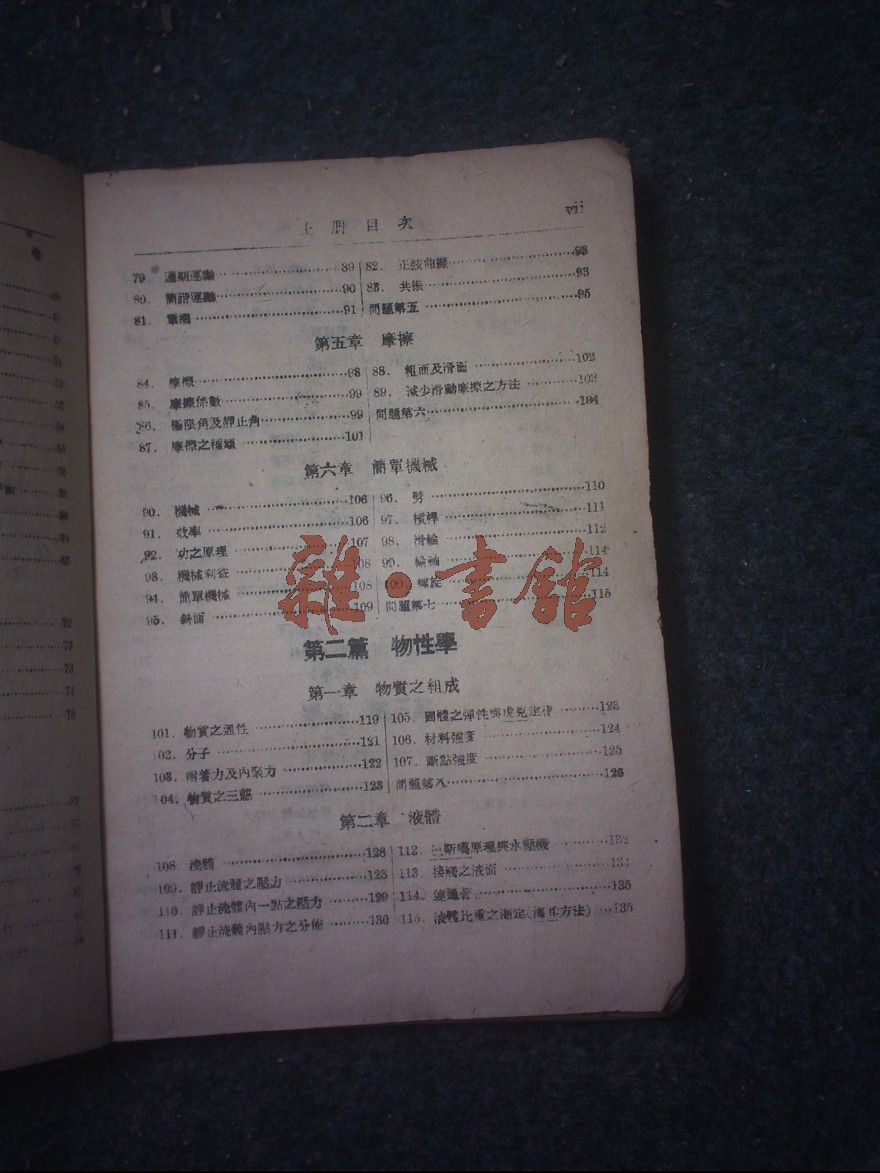 上册目次
vii
79. 週期運動 89
80. 簡諧運動 90
81. 單擺 91
82. 正弦曲線 93
83. 共振 93
問題第五 95
第五章 摩擦
84. 摩擦 98
85. 摩擦係數 99
86. 極限角及靜止角 99
87. 摩擦之種類 101
88. 粗面及滑面 102
89. 減少滑動摩擦之方法 103
問題第六 104
第六章 簡單機械
90. 機械 106
91. 效率 106
92. 功之原理 107
93. 機械利益 108
94. 簡單機械 108
95. 斜面 109
96. 劈 110
97. 槓桿 111
98. 滑輪 112
99. 輪軸 114
100. 螺旋 114
問題第七 115
雜·書館
第二篇 物性學
第一章 物質之組成
101. 物質之通性 119
102. 分子 121
103. 附着力及內聚力 122
104. 物質之三態 123
105. 固體之彈性與虎克定律 123
106. 材料強度 124
107. 斷點強度 125
問題第八 126
第二章 液體
108. 流體 128
109. 靜止流體之壓力 128
110. 靜止流體內一點之壓力 129
111. 靜止流體內壓力之分佈 130
112. 巴斯噶原理與水壓機 132
113. 接觸之液面 134
114. 連通管 135
115. 液體比重之測定(海氏方法) 135
66
72
73
74
75